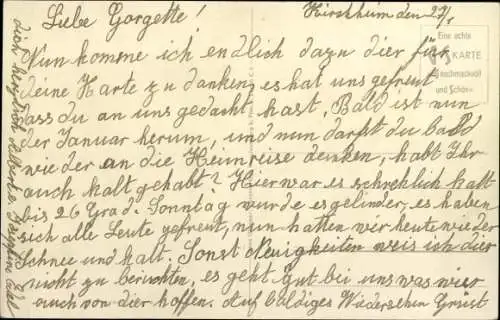 Hirschheim den 27/1
Liebe Gorgette!
Nun komme ich endlich dazu dier für
deine Karte zu danken, es hat uns gefreut
dass du an uns gedacht hast, Bald ist nun
der Januar herum, und nun darfst du bald
wieder an die Heimreise denken, habt Ihr
auch kalt gehabt? Hier war es schreklich kalt
bis 26 Grad. Sonntag wurde es gelinder, es haben
sich alle Leute gefreut, nun hatten wir heute wieder
Schnee und kalt. Sonst Neuigkeiten weis ich dier
nicht zu berichten, es geht gut bei uns was wier
auch von dier hoffen. Auf baldiges Wiedersehen Grüst
dich herzlich
Eine echte
KARTE
geschmackvoll
und Schön